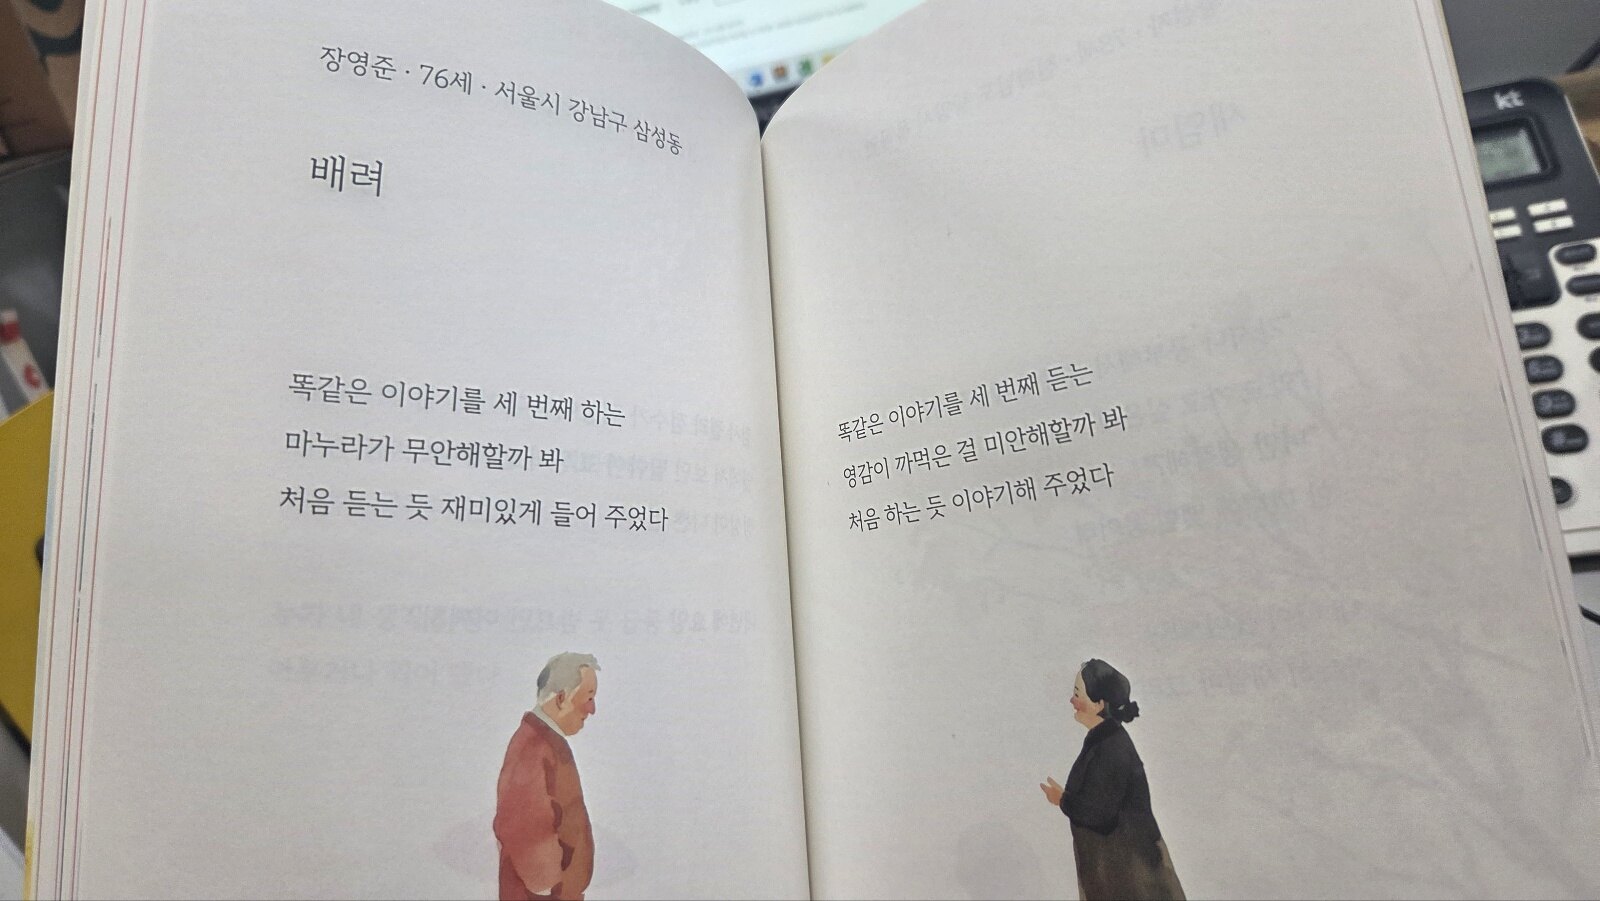 장영준 · 76세 · 서울시 강남구 삼성동
배려
똑같은 이야기를 세 번째 하는
마누라가 무안해할까 봐
처음 듣는 듯 재미있게 들어 주었다
똑같은 이야기를 세 번째 듣는
영감이 까먹은 걸 미안해할까 봐
처음 하는 듯 이야기해 주었다
kt